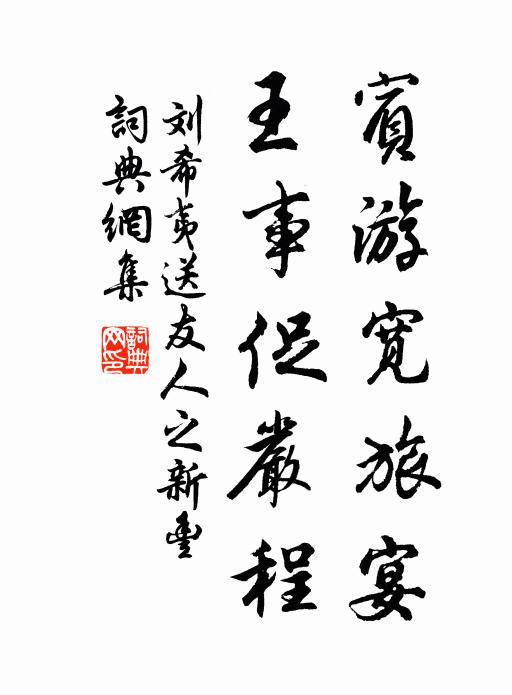 賓游寬旅宴
王事促嚴程
刘希夷送友人之新豐
詞典網集
詞典网印